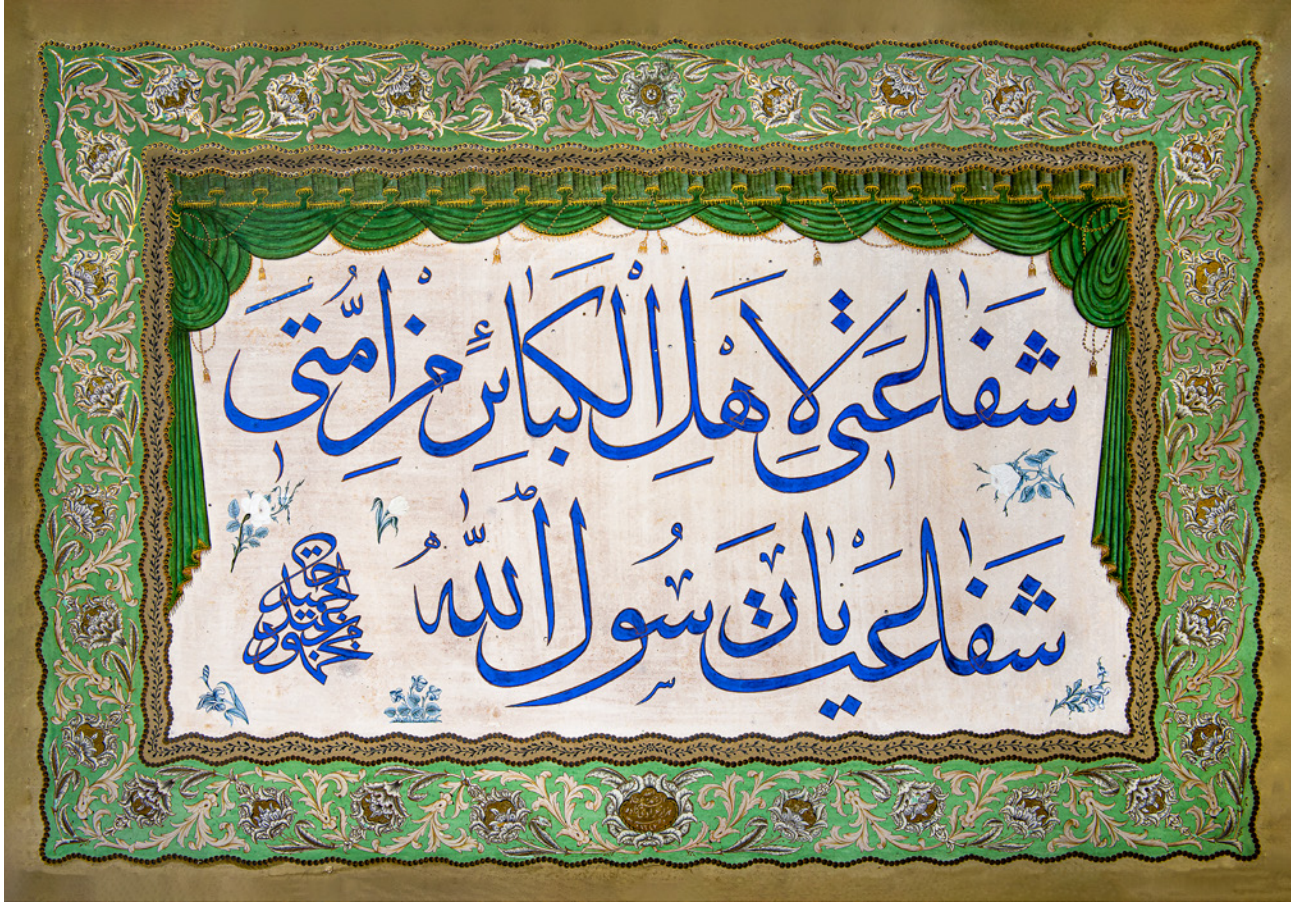 شفاعتى لاهل الكبائر من امتى
شفاعت يا رسول الله
محمود بن عبد الحميد خان